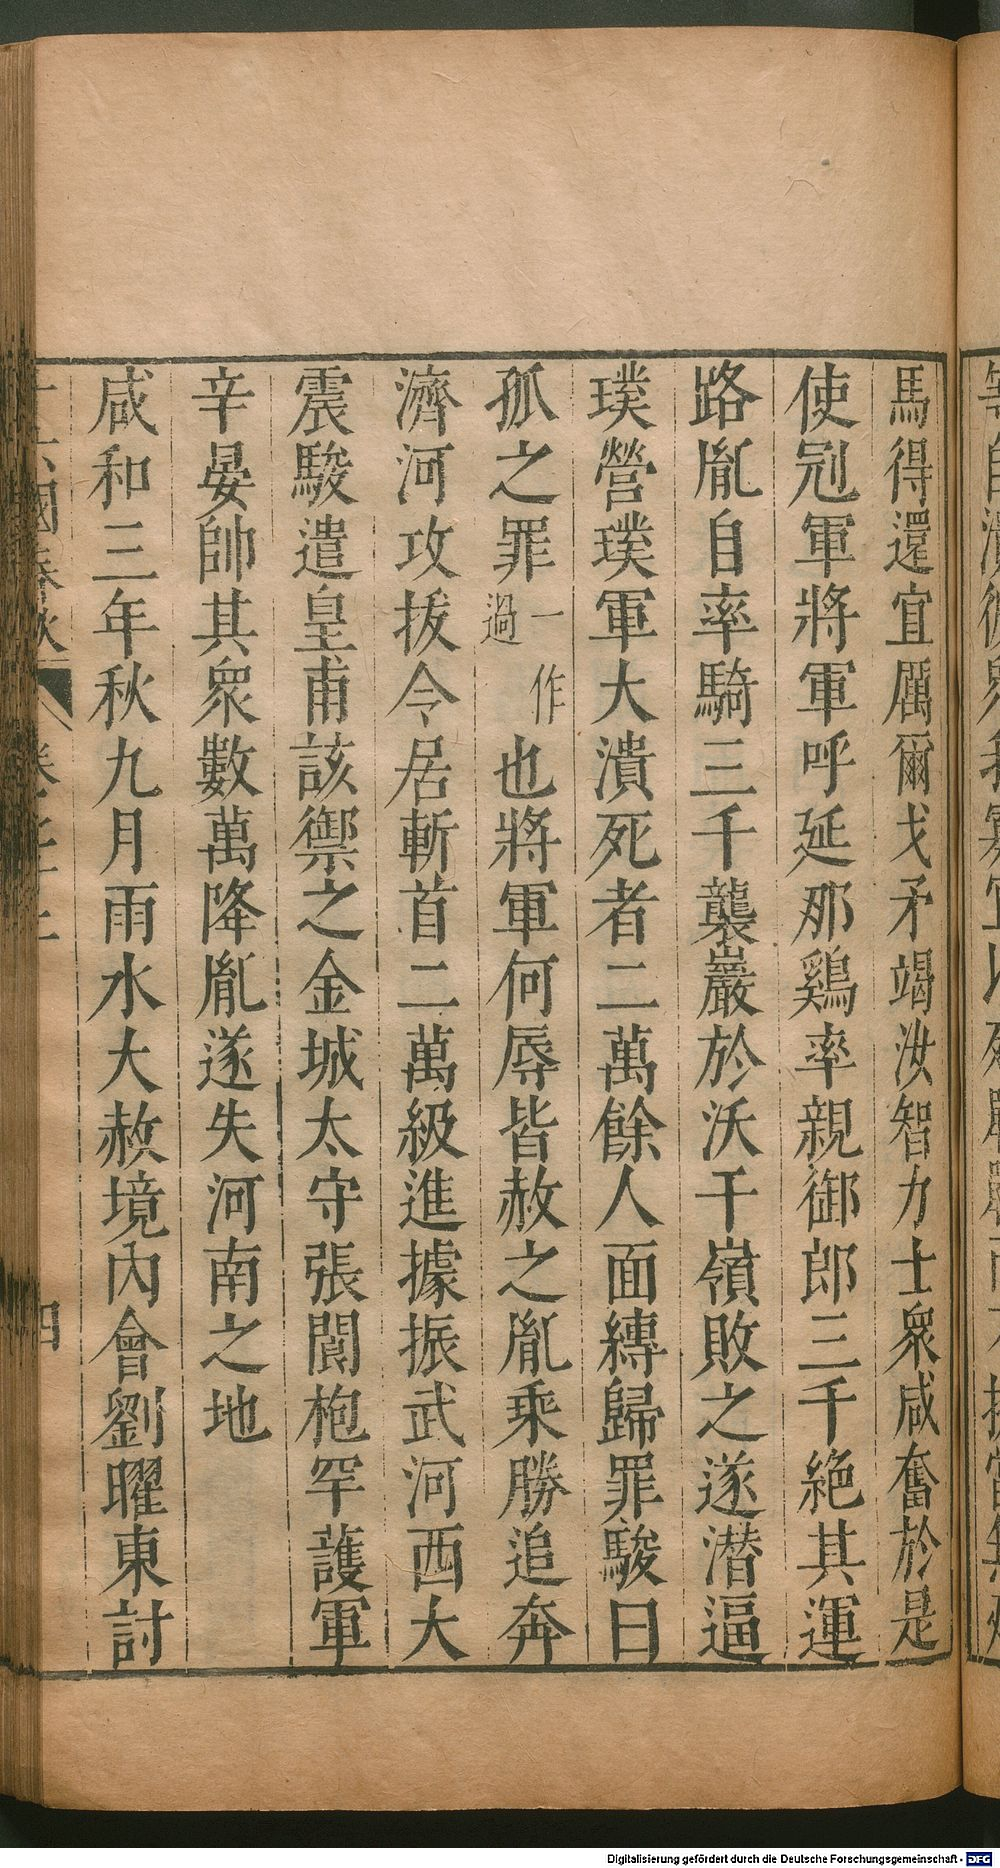 馬得還宜厲爾戈矛竭汝智力士衆咸奮於是
使冠軍將軍呼延那鷄率親御郎三千絶其運
路胤自率騎三千襲巖於沃干嶺敗之遂潛逼
璞營璞軍大潰死者二萬餘人面縛歸罪駿曰
孤之罪一作過也將軍何辱皆赦之胤乘勝追奔
濟河攻拔令居斬首二萬級進據振武河西大
震駿遣皇甫該禦之金城太守張閬枹罕護軍
辛晏帥其衆數萬降胤遂失河南之地
咸和三年秋九月雨水大赦境內會劉曜東討
十六國春秋
四
Digitalisierung gefördert durch die Deutsche Forschungsgemeinschaft - DFG